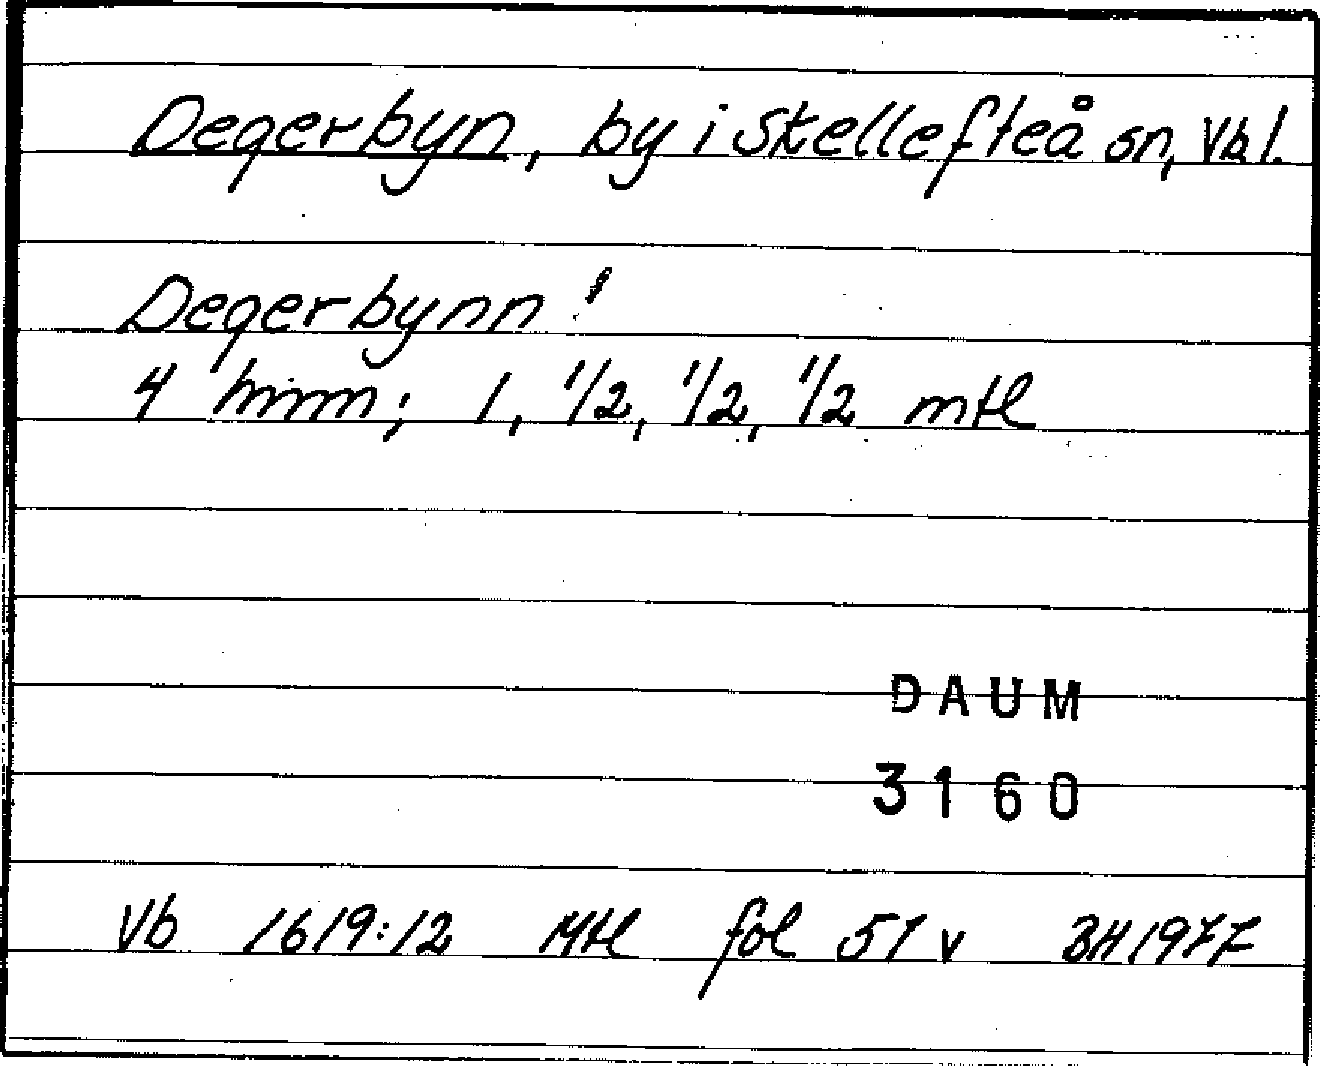 Degerbyn, by i Skellefteå sn, Vb l.
Degerbynn!
4 hmm; 1, 1/2, 1/2, 1/2 mtl
DAUM
3160
Vb 1619:12 Mtl fol 51 v BH 1977